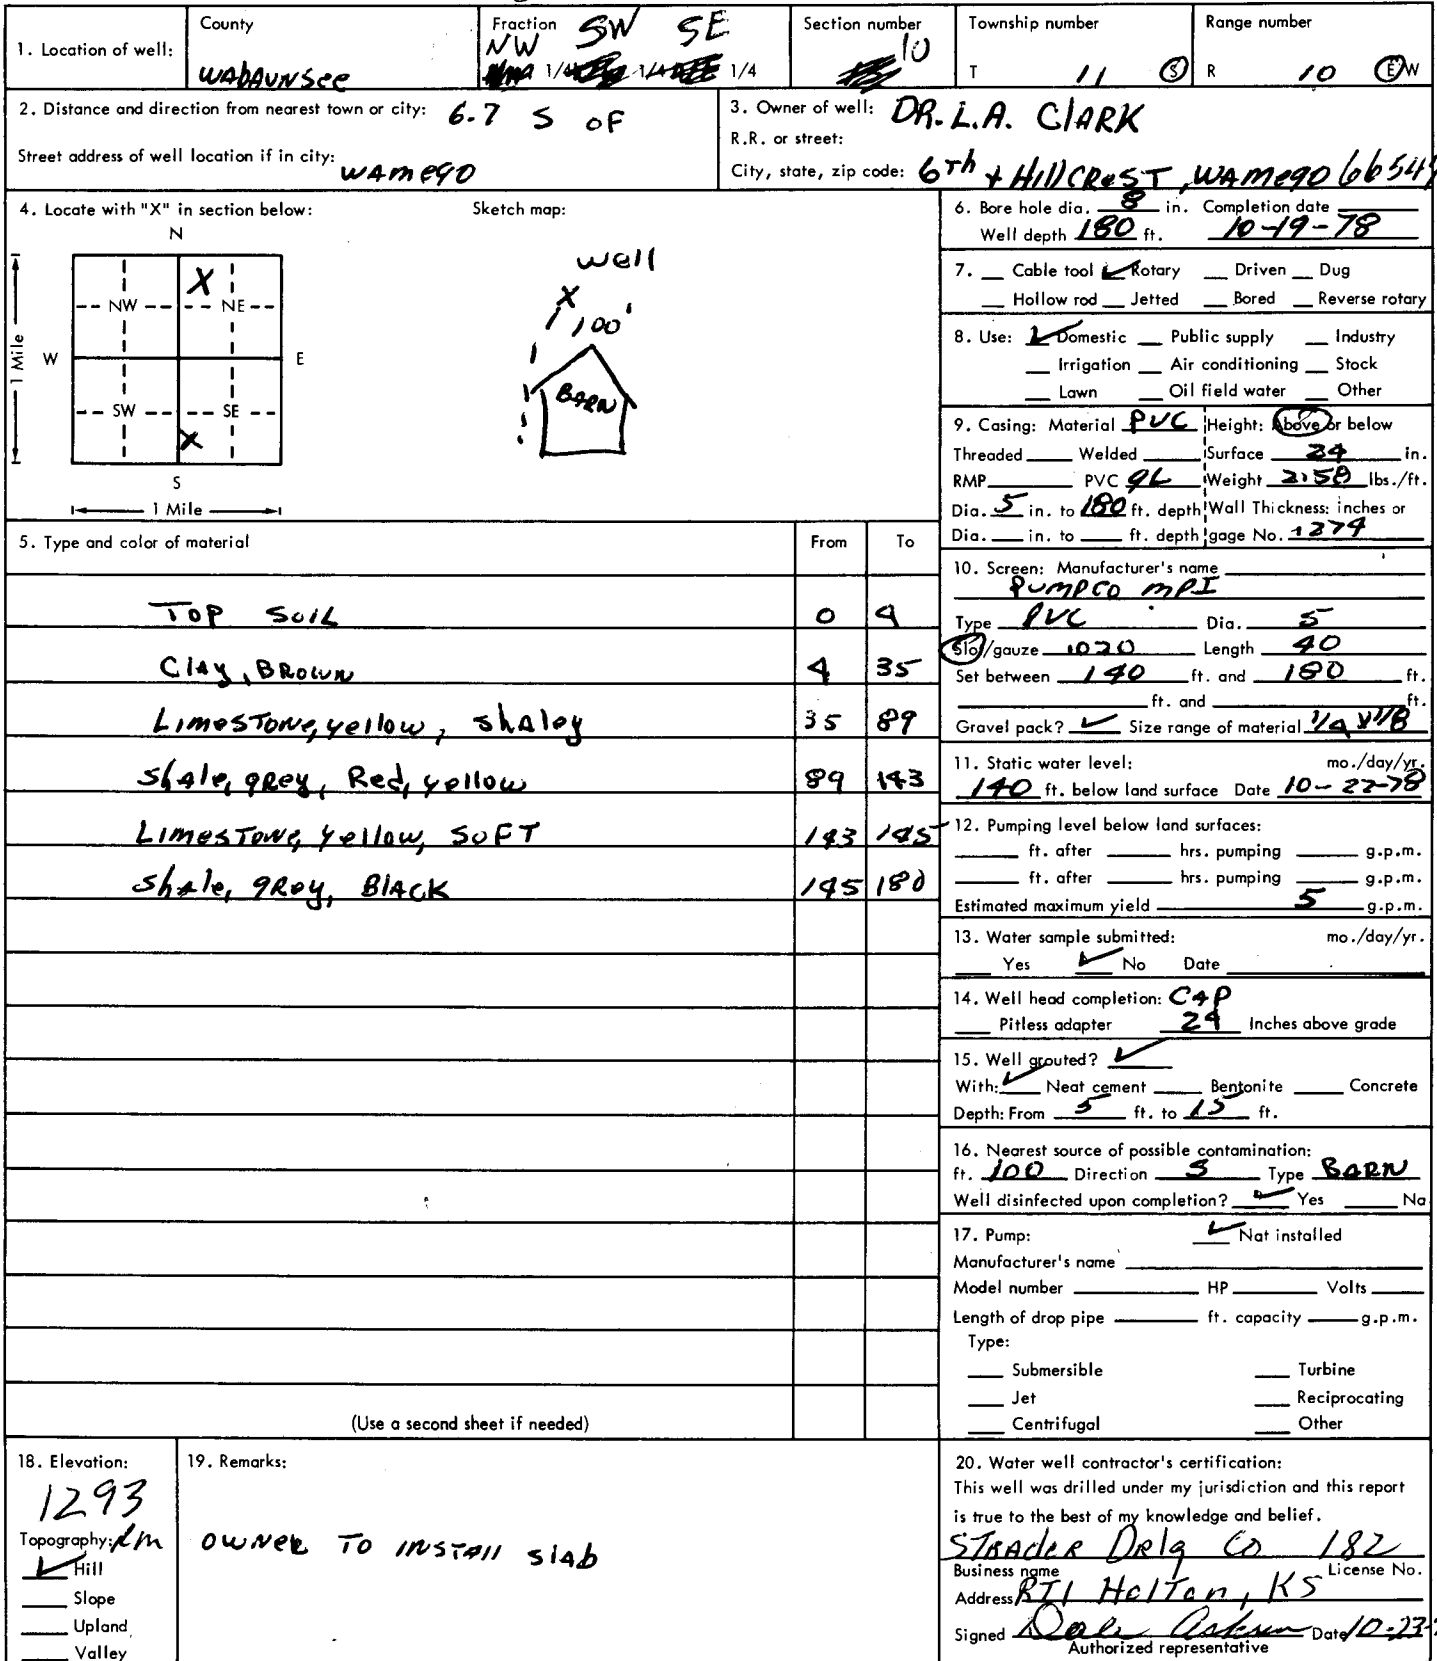 1. Location of well:
County
WABAUNSEE
Fraction
NW SW SE
1/4 1/4 1/4
Section number
10
Township number
T 11 S
Range number
R 10 E W
2. Distance and direction from nearest town or city: 6.7 S OF
Street address of well location if in city:
WAMEGO
3. Owner of well: DR. L.A. CLARK
R.R. or street:
City, state, zip code: 6Th + HILLCREST, WAMEGO 6654
4. Locate with "X" in section below:
N
X
NW NE
W E
SW SE
X
S
1 Mile
1 Mile
Sketch map:
well
X
100'
BARN
5. Type and color of material From To
TOP SOIL 0 4
CLAY, BROWN 4 35
LIMESTONE, yellow, shaley 35 89
shale, grey, Red, yellow 89 143
LIMESTONE, yellow, SOFT 143 145
shale, grey, BLACK 145 180
(Use a second sheet if needed)
6. Bore hole dia. 8 in. Completion date
Well depth 180 ft. 10-19-78
7. Cable tool ✓ Rotary Driven Dug
Hollow rod Jetted Bored Reverse rotary
8. Use: ✓ Domestic Public supply Industry
Irrigation Air conditioning Stock
Lawn Oil field water Other
9. Casing: Material PVC Height: Above or below
Threaded Welded Surface 24 in.
RMP PVC GL Weight 2.58 lbs./ft.
Dia. 5 in. to 180 ft. depth Wall Thickness: inches or
Dia. in. to ft. depth gage No.
10. Screen: Manufacturer's name
PUMPCO MPI
Type PVC Dia. 5
Slot/gauze .020 Length 40
Set between 140 ft. and 180 ft.
ft. and ft.
Gravel pack? ✓ Size range of material 1/4 X 1/8
11. Static water level: mo./day/yr.
140 ft. below land surface Date 10-22-78
12. Pumping level below land surfaces:
ft. after hrs. pumping g.p.m.
ft. after hrs. pumping g.p.m.
Estimated maximum yield 5 g.p.m.
13. Water sample submitted: mo./day/yr.
Yes ✓ No Date
14. Well head completion: CAP
Pitless adapter 24 Inches above grade
15. Well grouted? ✓
With: ✓ Neat cement Bentonite Concrete
Depth: From 5 ft. to 15 ft.
16. Nearest source of possible contamination:
ft. 100 Direction S Type BARN
Well disinfected upon completion? ✓ Yes No
17. Pump: ✓ Not installed
Manufacturer's name
Model number HP Volts
Length of drop pipe ft. capacity g.p.m.
Type:
Submersible Turbine
Jet Reciprocating
Centrifugal Other
18. Elevation:
1293
Topography:
✓ Hill
Slope
Upland
Valley
19. Remarks:
OWNER TO INSTALL SLAB
20. Water well contractor's certification:
This well was drilled under my jurisdiction and this report
is true to the best of my knowledge and belief.
STRADER DRLG CO 182
Business name License No.
Address RT1 Holton, KS
Signed Dale Date 10-23-
Authorized representative